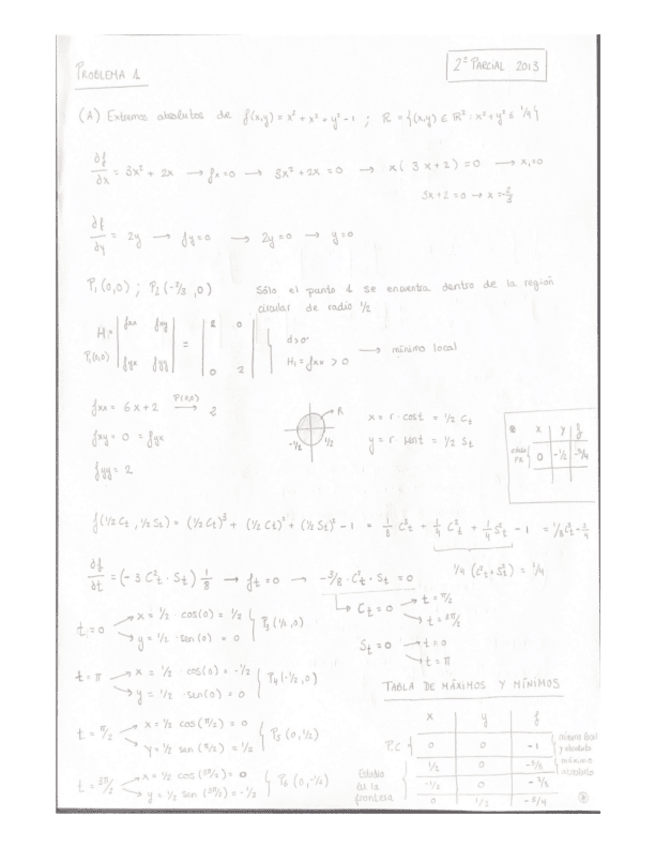 PROBLEMA 1
2º PARCIAL 2013
(A) Extremos absolutos de f(x,y) = x³ + x² + y² - 1 ; R = {(x,y) ∈ ℝ² : x² + y² ≤ 1/4}
∂f/∂x = 3x² + 2x → fx = 0 → 3x² + 2x = 0 → x(3x+2) = 0 → x₁ = 0
3x + 2 = 0 → x = -2/3
∂f/∂y = 2y → fy = 0 → 2y = 0 → y = 0
P₁ (0,0) ; P₂ (-2/3, 0) Sólo el punto 1 se encuentra dentro de la región
circular de radio 1/2
H = | fxx fxy | = | 2 0 | d > 0
P₁(0,0) | fyx fyy | | 0 2 | H₁ = fxx > 0 → mínimo local
fxx = 6x + 2 P(0,0) → 2
fxy = 0 = fyx
fyy = 2
R
-1/2 1/2
x = r · cos t = 1/2 Ct
y = r · sen t = 1/2 St
x y f
0 -1/2 -3/4
f(1/2 Ct, 1/2 St) = (1/2 Ct)³ + (1/2 Ct)² + (1/2 St)² - 1 = 1/8 C³t + 1/4 C²t + 1/4 S²t - 1 = 1/8 C³t - 3/4
1/4 (C²t + S²t) = 1/4
∂f/∂t = (-3 C²t · St) 1/8 → ft = 0 → -3/8 · C²t · St = 0
Ct = 0 → t = π/2
→ t = 3π/2
St = 0 → t = 0
→ t = π
t = 0 → x = 1/2 · cos(0) = 1/2
→ y = 1/2 · sen(0) = 0 P₃ (1/2, 0)
t = π → x = 1/2 · cos(0) = -1/2
→ y = 1/2 · sen(0) = 0 P₄ (-1/2, 0)
t = π/2 → x = 1/2 cos(π/2) = 0
→ y = 1/2 sen(π/2) = 1/2 P₅ (0, 1/2)
t = 3π/2 → x = 1/2 cos(3π/2) = 0
→ y = 1/2 sen(3π/2) = -1/2 P₆ (0, -1/2)
TABLA DE MÁXIMOS Y MÍNIMOS
x y f
P.C 0 0 -1 mínimo local y absoluto
Estudio en la frontera
1/2 0 -5/8 máximo absoluto
-1/2 0
0 1/2 -3/4